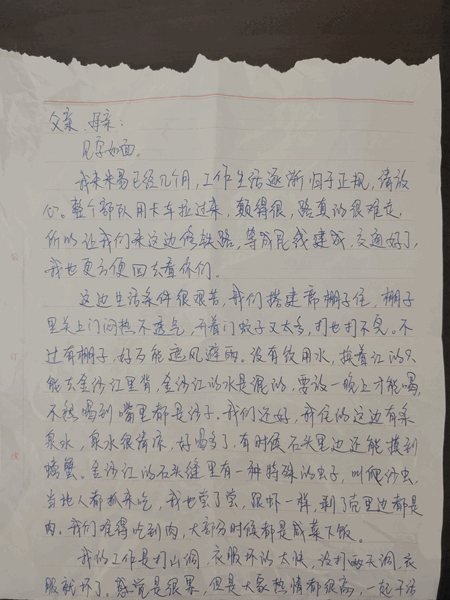 父亲、母亲：
见字如面。
我来米易已经几个月，工作生活逐渐归于正规，请放
心。整个部队用卡车拉过来，颠得很，路真的很难走，
所以让我们来这边修铁路，等成昆线建成，交通好了，
我也更方便回去看你们。
这边生活条件很艰苦，我们搭建席棚子住，棚子
里关上门闷热不透气，开着门蚊子又太多，打也打不完。不
过有棚子，好歹能遮风避雨。没有饮用水，挨着江的只
能去金沙江里背，金沙江的水是混的，要放一晚上才能喝，
不然喝到嘴里都是沙子。我们还好，我住的这边有条
泉水，泉水很清凉，好喝多了，有时候石头里边还能摸到
螃蟹。金沙江的石头缝里有一种特殊的虫子，叫爬沙虫，
当地人都抓来吃，我也尝了尝，跟虾一样，剥了壳里边都是
肉。我们难得吃到肉，大部分时候都是咸菜下饭。
我的工作是打山洞，衣服坏的太快，没打两天洞，衣
服就坏了，感觉是很累，但是大家热情都很高，一起干活